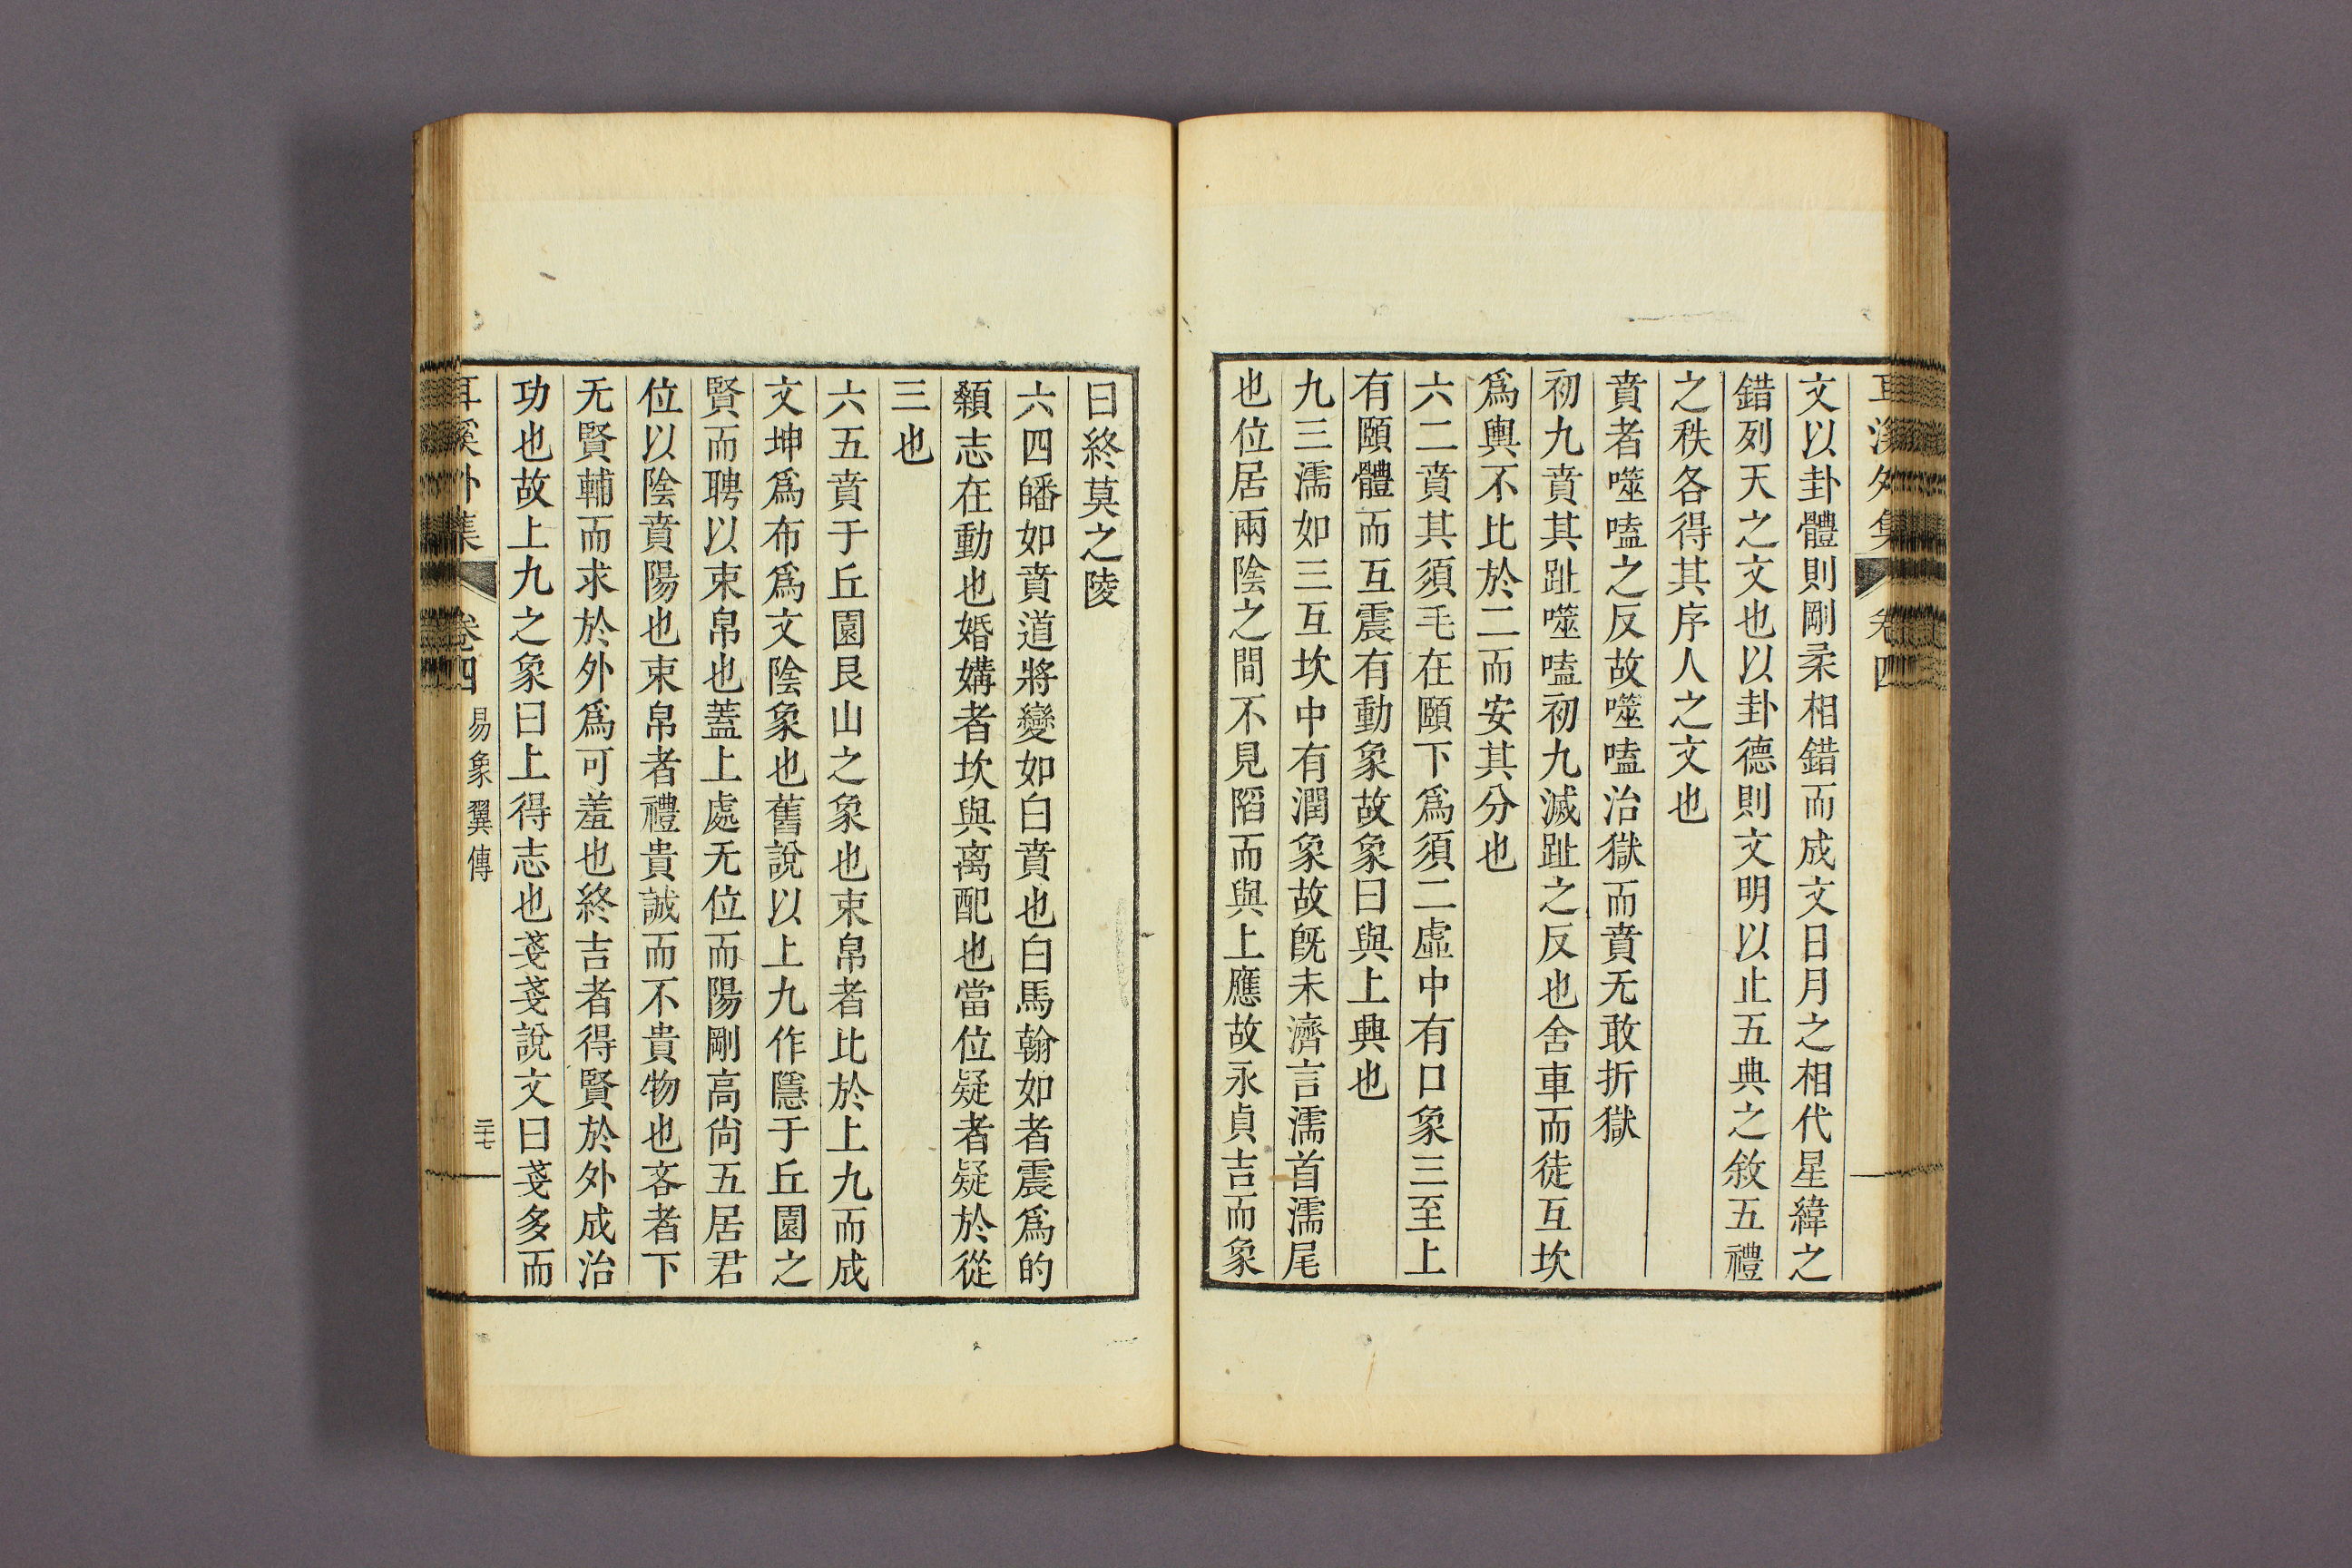 耳溪外集 卷四
文以卦體則剛柔相錯而成文日月之相代星緯之
錯列天之文也以卦德則文明以止五典之敘五禮
之秩各得其序人之文也
賁者噬嗑之反故噬嗑治獄而賁无敢折獄
初九賁其趾噬嗑初九滅趾之反也舍車而徒互坎
爲輿不比於二而安其分也
六二賁其須毛在頤下爲須二虛中有口象三至上
有頤體而互震有動象故象曰與上興也
九三濡如三互坎中有潤象故旣未濟言濡首濡尾
也位居兩陰之間不見陷而與上應故永貞吉而象
曰終莫之陵
六四皤如賁道將變如白賁也白馬翰如者震爲的
顙志在動也婚媾者坎與离配也當位疑者疑於從
三也
六五賁于丘園艮山之象也束帛者比於上九而成
文坤爲布爲文陰象也舊說以上九作隱于丘園之
賢而聘以束帛也蓋上處无位而陽剛高尙五居君
位以陰賁陽也束帛者禮貴誠而不貴物也吝者下
无賢輔而求於外爲可羞也終吉者得賢於外成治
功也故上九之象曰上得志也戔戔說文曰戔多而
耳溪外集 卷四 易象翼傳 三十七